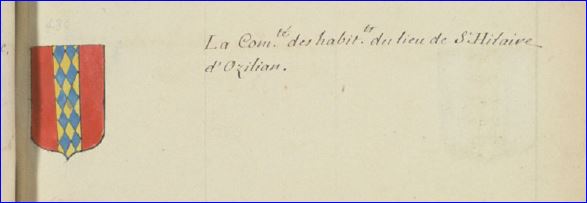 486
La Com.té des habit.ts du lieu de St. Hilaire
d'Ozilian.